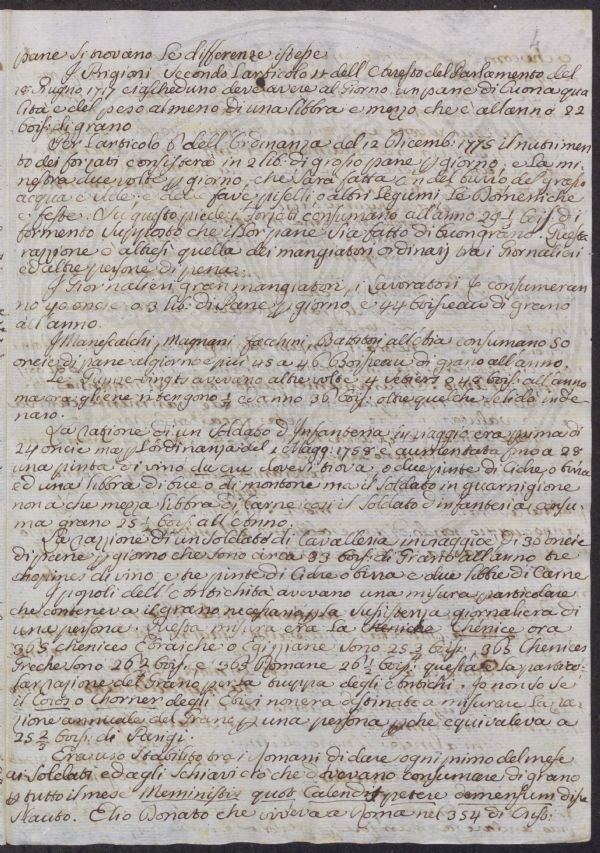 4
pane si trovano le differenze istesse
I Prigioni secondo l'articolo 11 dell'Arresto del Parlamento del
18 Giugno 1717 ciascheduno deve avere al giorno un pane di buona qua
lità e del peso almeno di una libbra e mezzo che è all'anno 22
bois: di grano
Per l'articolo 6 dell'ordinanza del 12 Dicemb: 1775 il nutrimen
to dei forzati consisterà in 2 lib: di grosso pane p giorno, e la mi
nestra due volte p giorno, che sarà fatta con del burro del grasso
acqua e sale, e delle fave piselli o altri legumi le Domeniche
e feste. Su questo piede i forzati consumano all'anno 29 1/3 bois: di
formento supposto che il lor pane sia fatto di buon grano. Questa
razzione è altresì quella dei mangiatori ordinarj tra i Giornalieri
ed altre persone di pena.
I Giornalieri gran mangiatori, i Lavoratori consumeran
no 40 oncie o 3 lib: di pane p giorno e 44 boisseau di grano
all'anno.
I Maniscalchi, Magnani facchini, consumano 50
oncie di pane al giorno e più 45 a 46 Boisseau di grano all'anno.
Le Quinze-vingts avevano altre volte 4 sestiers o 48 bois: all'anno
ma ora gliene ritengono 1/4 ed anno 36 bois: oltre quel che se li dà in de
naro.
La razione di un soldato d'Infanteria in viaggio era prima di
24 oncie ma p l'ordinanza del 1 Magg: 1758 è aumentata fino a 28
una pinta di vino du cru dove si trova o due pinte di Cidre o birra
ed una libbra di bue o di montone ma il soldato in guarnigione
non à che mezza libbra di carne così il soldato d'infanteria consu
ma grano 25 bois: all'anno.
La razzione di un soldato di Cavalleria in viaggio è di 30 oncie
di pane p giorno che sono circa 33 bois: di Grano all'anno tre
chopines di vino, e tre pinte di Cidre o birra e due libbre di Carne
I popoli dell'antichità avevano una misura particolare
che conteneva il grano necessario p la sussistenza giornaliera di
una persona. Questa misura era la Chenice ora
365 chenices Ebraiche o Egizzane sono 25 2/3 bois: 365 Chenices
Greche sono 26 2/3 bois: e 365 Romane 26 1/2 bois: questa è la partico:
lar razione del Grano per la truppa degli antichi. Io non so se
il Coros o Chorner degli Ebrei non era destinato a misurare la ra
zione annuale del Grano p una persona p che equivaleva a
25 2/3 bois: di Parigi.
Era uso stabilito tra i Romani di dare ogni primo del mese
ai soldati ed agli schiavi ciò che dovevano consumare di grano
p tutto il mese Meministis quot Calendis petere demensum disse
Plauto. Elio Donato che viveva a Roma nel 354 di Cris: